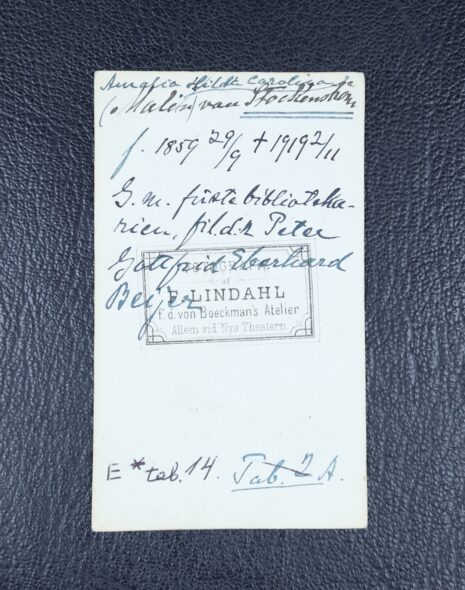 Amalia Hilda Carolina
(Malin) von Stockenström
f. 1859 29/9 + 1919 2/11
G. m. förste biblioteka-
rien, fil.d:r Peter
Gottfrid Eberhard
Beijer
af
F. LINDAHL
f. d. von Boeckman's Atelier
Alleen vid Nya Theatern
E * tab. 14. Tab. 2 A.